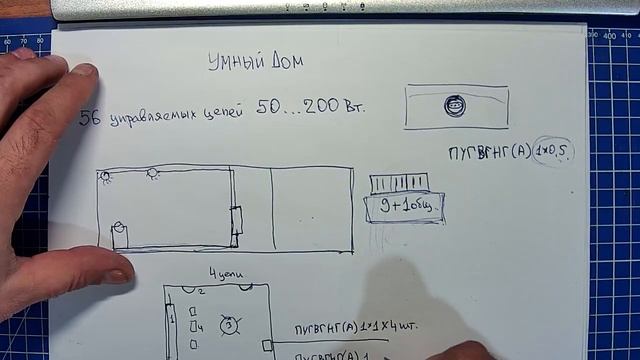 УМНЫЙ ДОМ
56 управляемых цепей 50...200 Вт.
ПУГВГНГ(А) 1×0,5
9+1общ.
4 цепи
2
1
4
3
ПУГВГНГ(А) 1×1×4шт.
ПУГВГНГ(А) 1